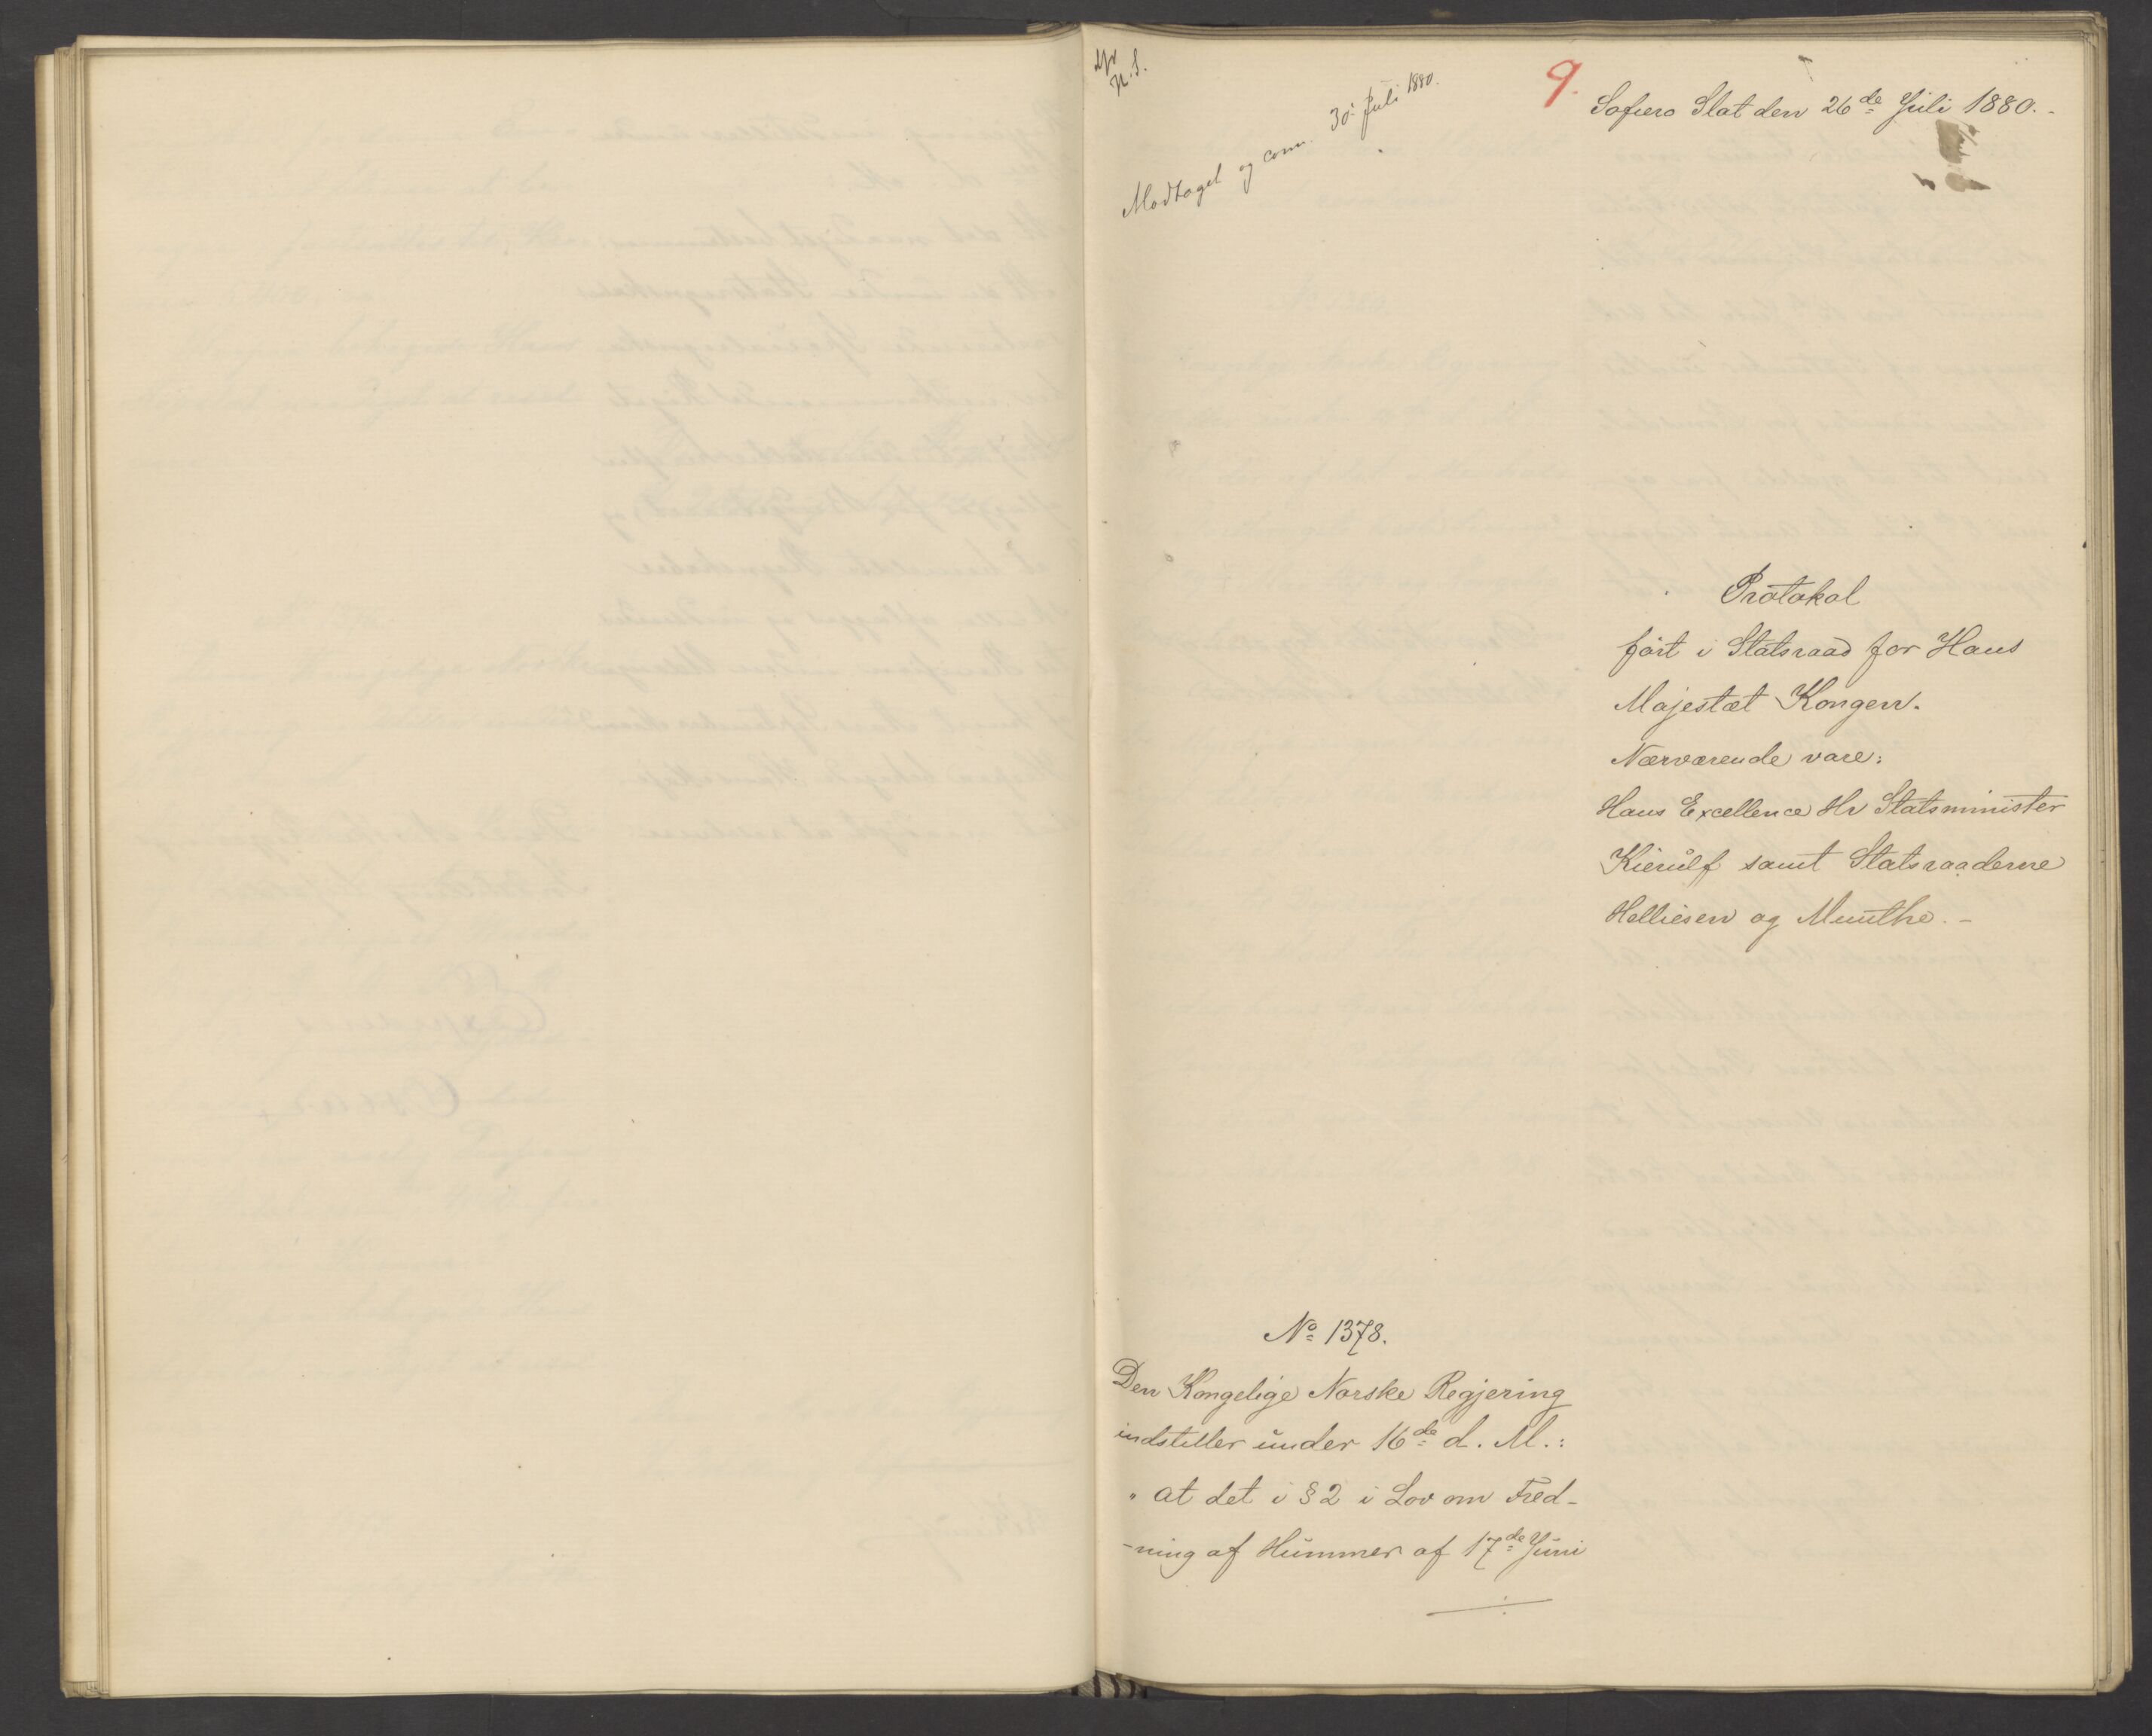 N. S.
Modtaget og comm. 30. Juli 1880.
9.
Sofiero Slot den 26de Juli 1880.-
Protokol
ført i Statsraad for Hans
Majestæt Kongen.
Nærværende vare:
Hans Excellence Hr Statsminister
Kierulf samt Statsraaderne
Helliesen og Munthe.-
No 1378.
Den Kongelige Norske Regjering
indstiller under 16de d. M.:
" at det i § 2 i Lov om Fred-
-ning af Hummer af 17de Juni